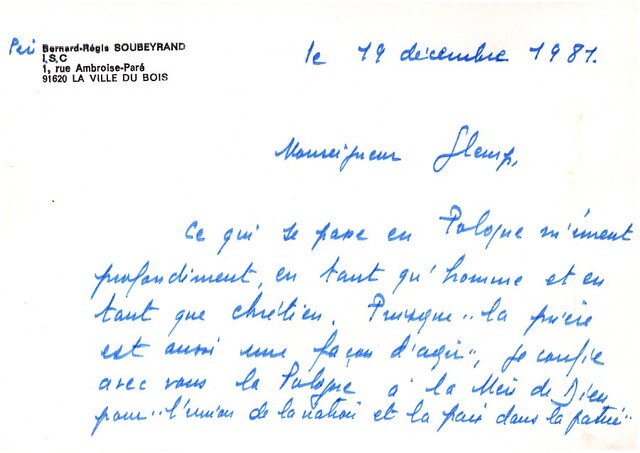 Bernard-Régis SOUBEYRAND
I.S.C
1, rue Ambroise-Paré
91620 LA VILLE DU BOIS
le 19 décembre 1981.
Monseigneur Glemp,
Ce qui se passe en Pologne m'émeut
profondément, en tant qu'homme et en
tant que chrétien. Puisque "la prière
est aussi une façon d'agir", je confie
avec vous la Pologne à la Mère de Dieu
pour "l'union de la nation et la paix dans la patrie"